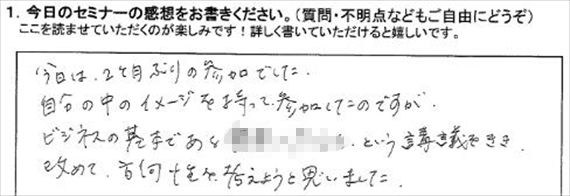 1. 今日のセミナーの感想をお書きください。(質問・不明点などもご自由にどうぞ)
ここを読ませていただくのが楽しみです!詳しく書いていただけると嬉しいです。
今日は、2ヶ月ぶりの参加でした。
自分の中のイメージを持って参加したのですが、
ビジネスの基本である という講義をきき、
改めて、 を考えようと思いました。